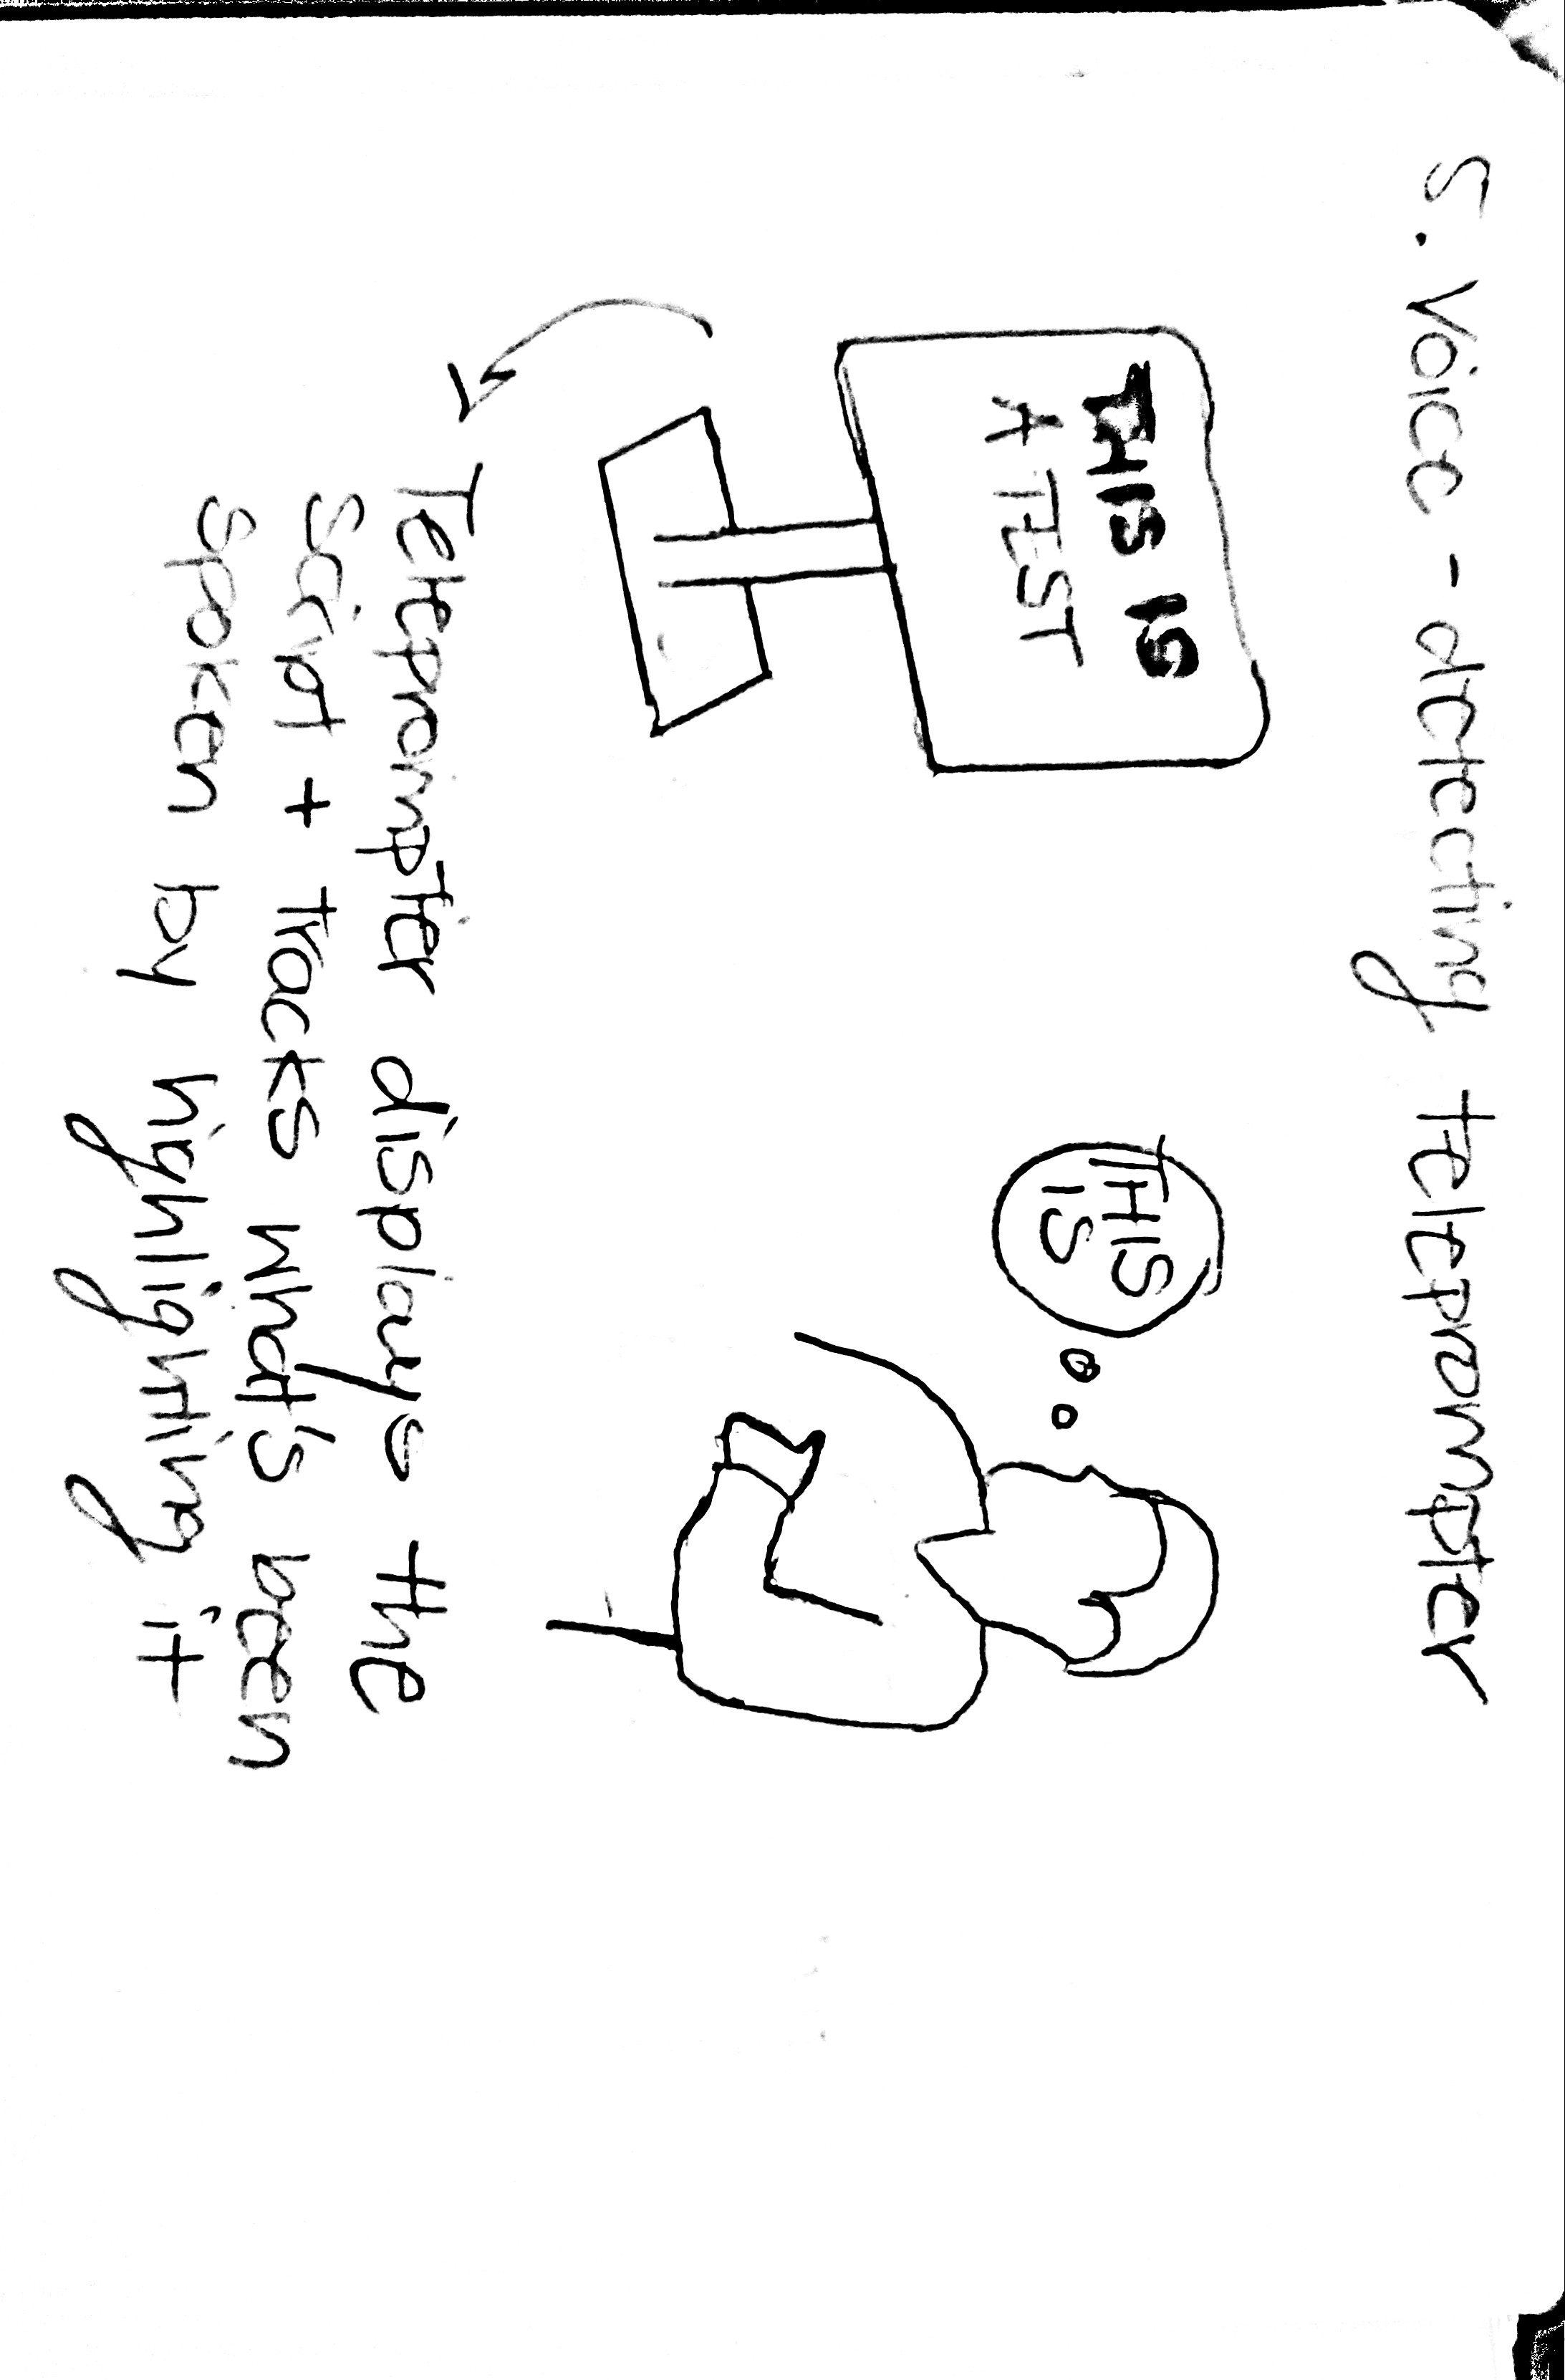 5. Voice-detecting teleprompter
THIS IS
A TEST
THIS
IS
Teleprompter displays the
script + tracks what's been
spoken by highlighting it